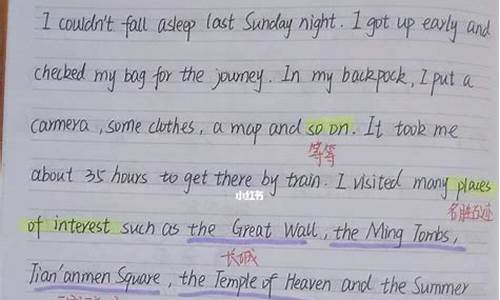 I couldn't fall asleep last Sunday night. I got up early and
checked my bag for the journey. In my backpack, I put a
carmera, some clothes, a map and so on. It took me
等等
about 35 hours to get there by train. I visited many places
小红书
名胜古迹
of interest such as the Great Wall, the Ming Tombs,
长城
Tian'anmen Square, the Temple of Heaven and the Summer